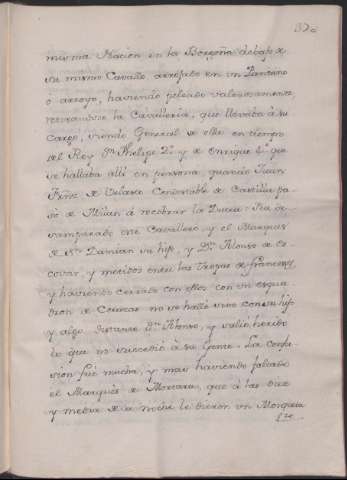 misma Nacion en la Borgoña debajo de
su mismo Cavallo arrojado en un Pantano
o arroyo, haviendo peleado valerosamente
retirandose la Cavalleria, que llevaba à su
cargo, siendo General de ella en tiempo
del Rey Dn. Phelipe 2º. y de Enrique 4º. que
se hallaba alli en persona, quando Juan
Frñz de Velasco Condestable de Castilla pa-
só de Milan á recobrar la Ducea: Iba de
samparado este Cavallero y el Marques
de Sn. Damian su hijo, y Dn. Alonso de
covar, y metidos entre las Tropas de franceses
y haviendo cerrado con ellos con un esqua
dron de Corazas no se halló sino con su hijo
y algo distante Dn. Alonso, y salió herido
lo que no sucedió à su Gente. La confu-
sion fué mucha, y mas haviendo faltado
el Marquès de Mortara, que à las diez
y media de la noche le dieron un Mosqueta